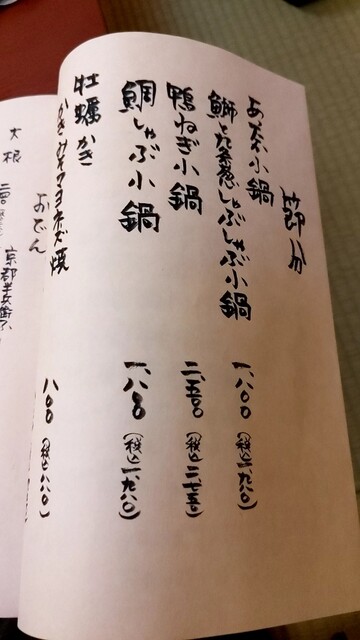 節分
あったか小鍋
鰤と九条葱しゃぶしゃぶ小鍋 一、八〇〇 (税込一、九八〇)
鴨ねぎ小鍋 二、五〇〇 (税込二、七五〇)
鯛しゃぶ小鍋 一、八〇〇 (税込一、九八〇)
牡蠣 かき
かきみそマヨネーズ焼 八〇〇 (税込八八〇)
おでん
大根
京都半兵衛